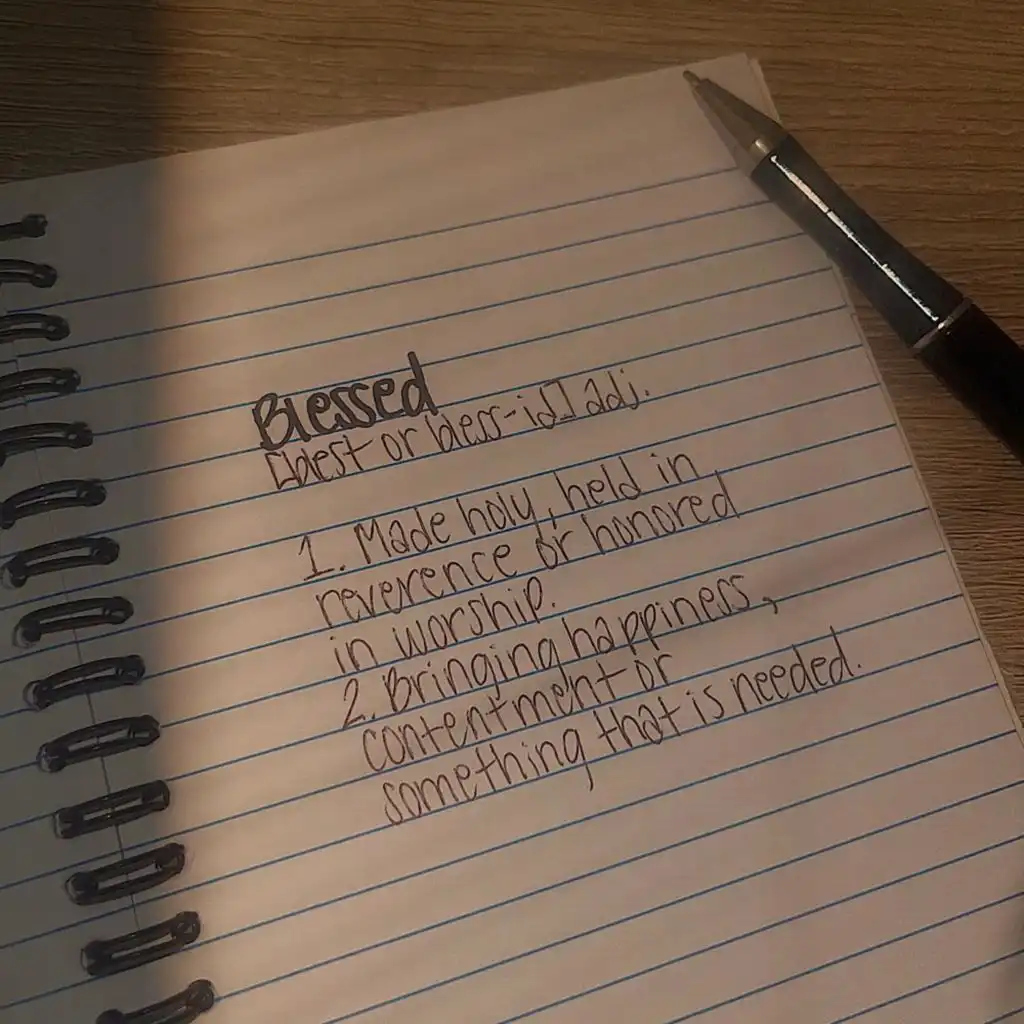 Blessed
[blest or bless-id] adj.
1. Made holy, held in
reverence or honored
in worship.
2. Bringing happiness,
contentment or
something that is needed.